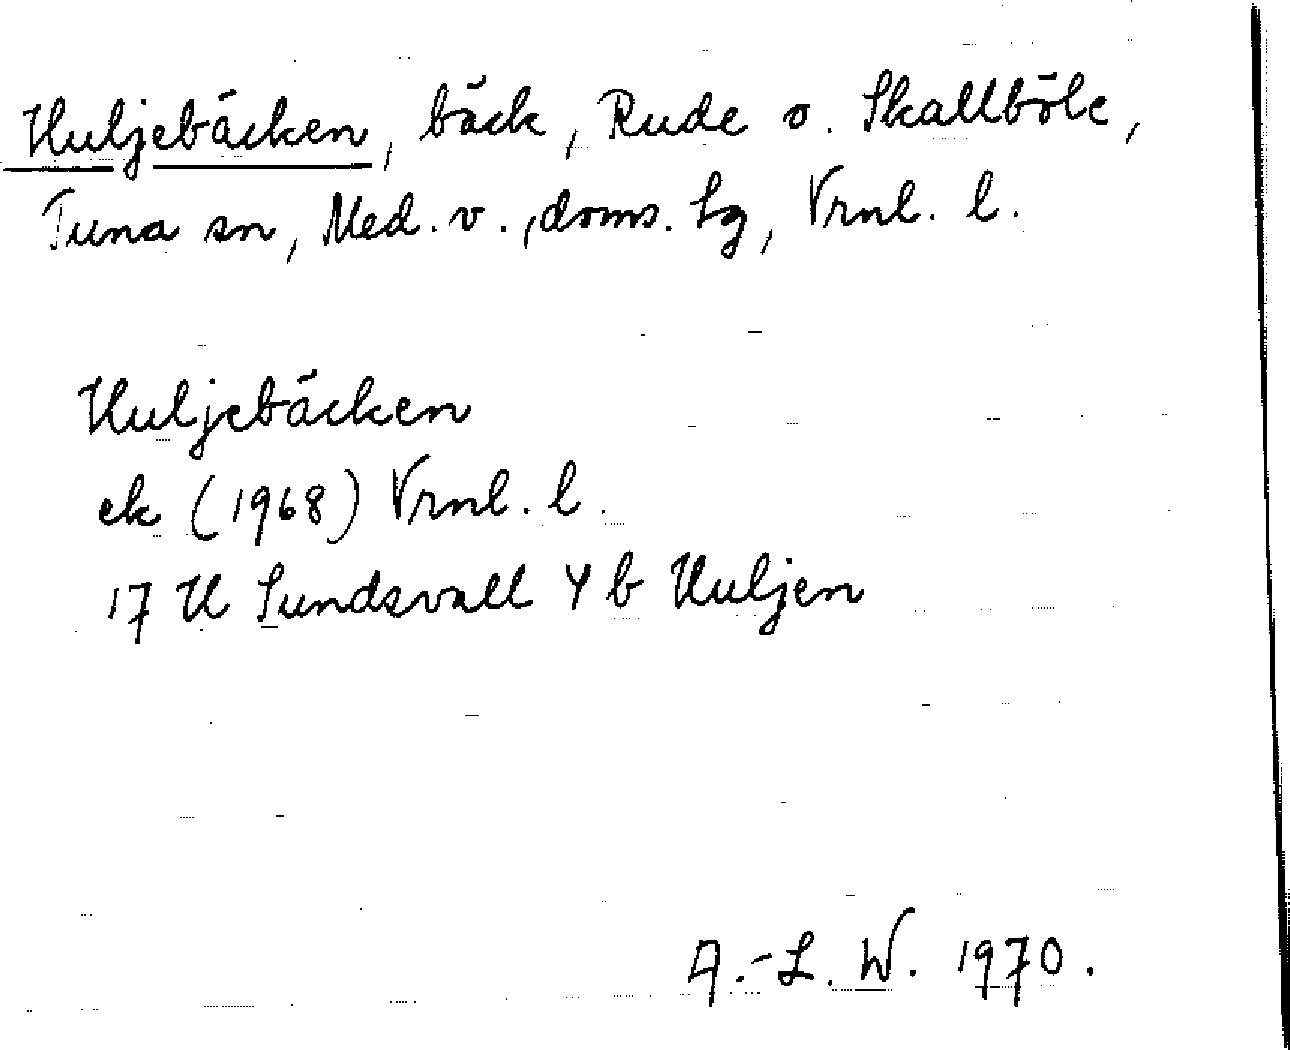 Huljebäcken, bäck, Rude o. Skallböle,
Tuna sn, Med. v., doms. lg, Vrnl. l.
Huljebäcken
ek (1968) Vrnl. l.
17 H Sundsvall 4 b Huljen
A.-L. W. 1970.